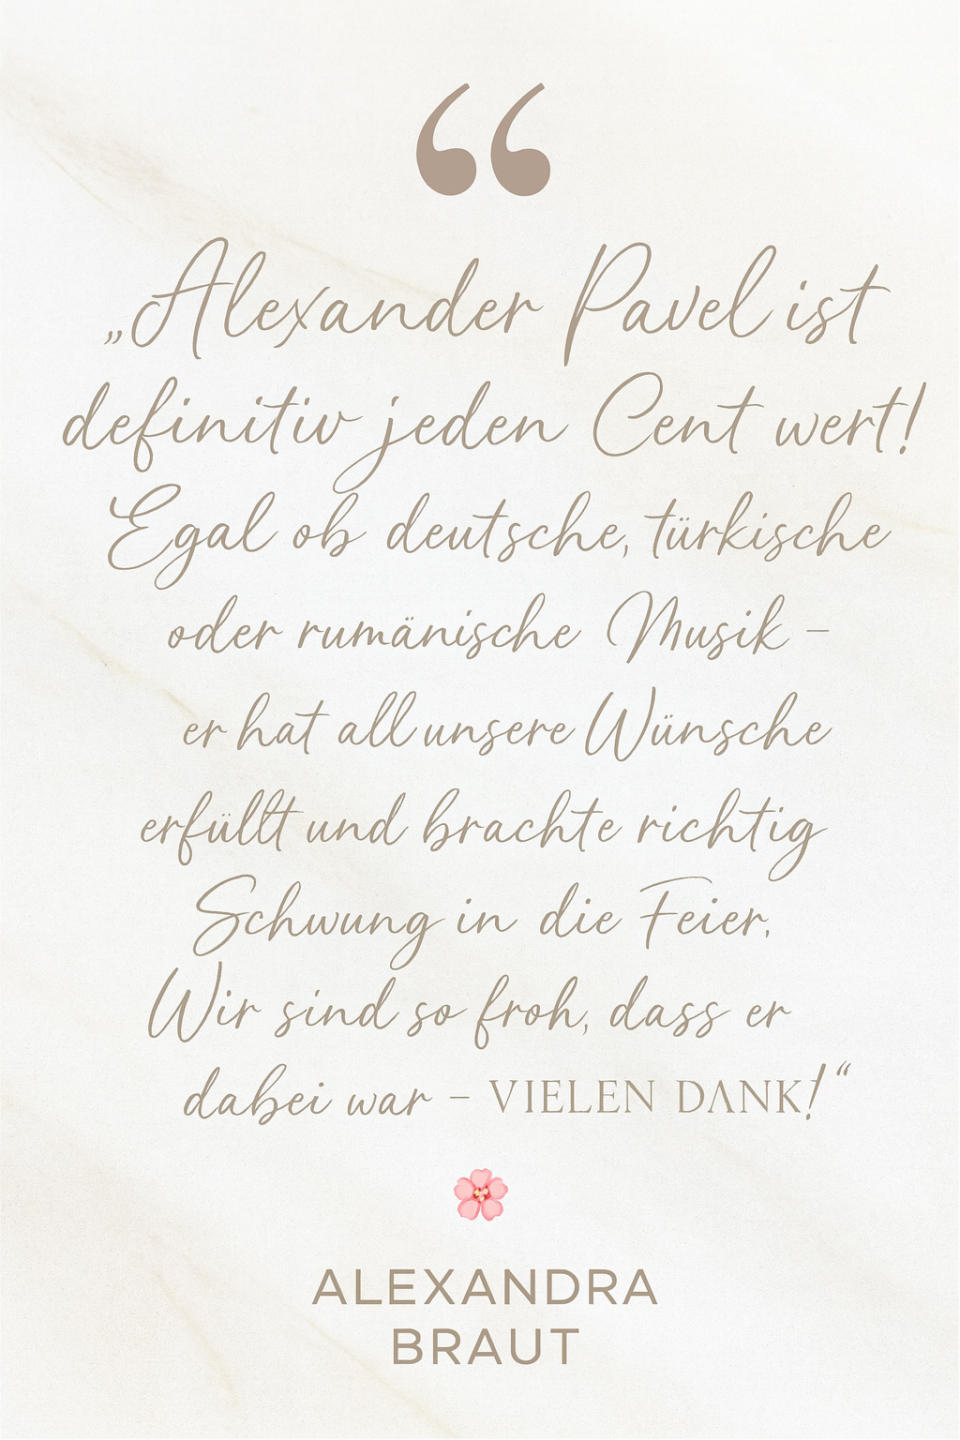 “
„Alexander Pavel ist
definitiv jeden Cent wert!
Egal ob deutsche, türkische
oder rumänische Musik –
er hat all unsere Wünsche
erfüllt und brachte richtig
Schwung in die Feier.
Wir sind so froh, dass er
dabei war – VIELEN DANK!“
ALEXANDRA
BRAUT